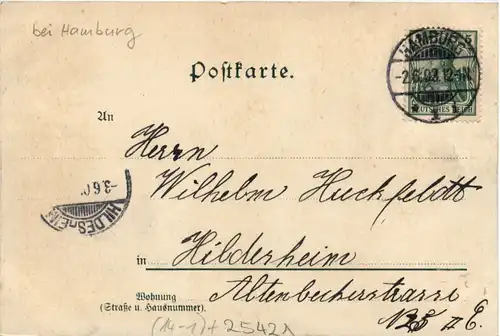 bei Hamburg
HAMBURG
-2.6.02.12-1N.
1
DEUTSCHES REICH
Postkarte.
An
Herrn
Wilhelm Huckfeldt
HILDESHEIM
-3.6.0
in Hildesheim
Wohnung
(Straße u. Hausnummer).
Altenbeckerstrasse
II E.
(14-1)+25421